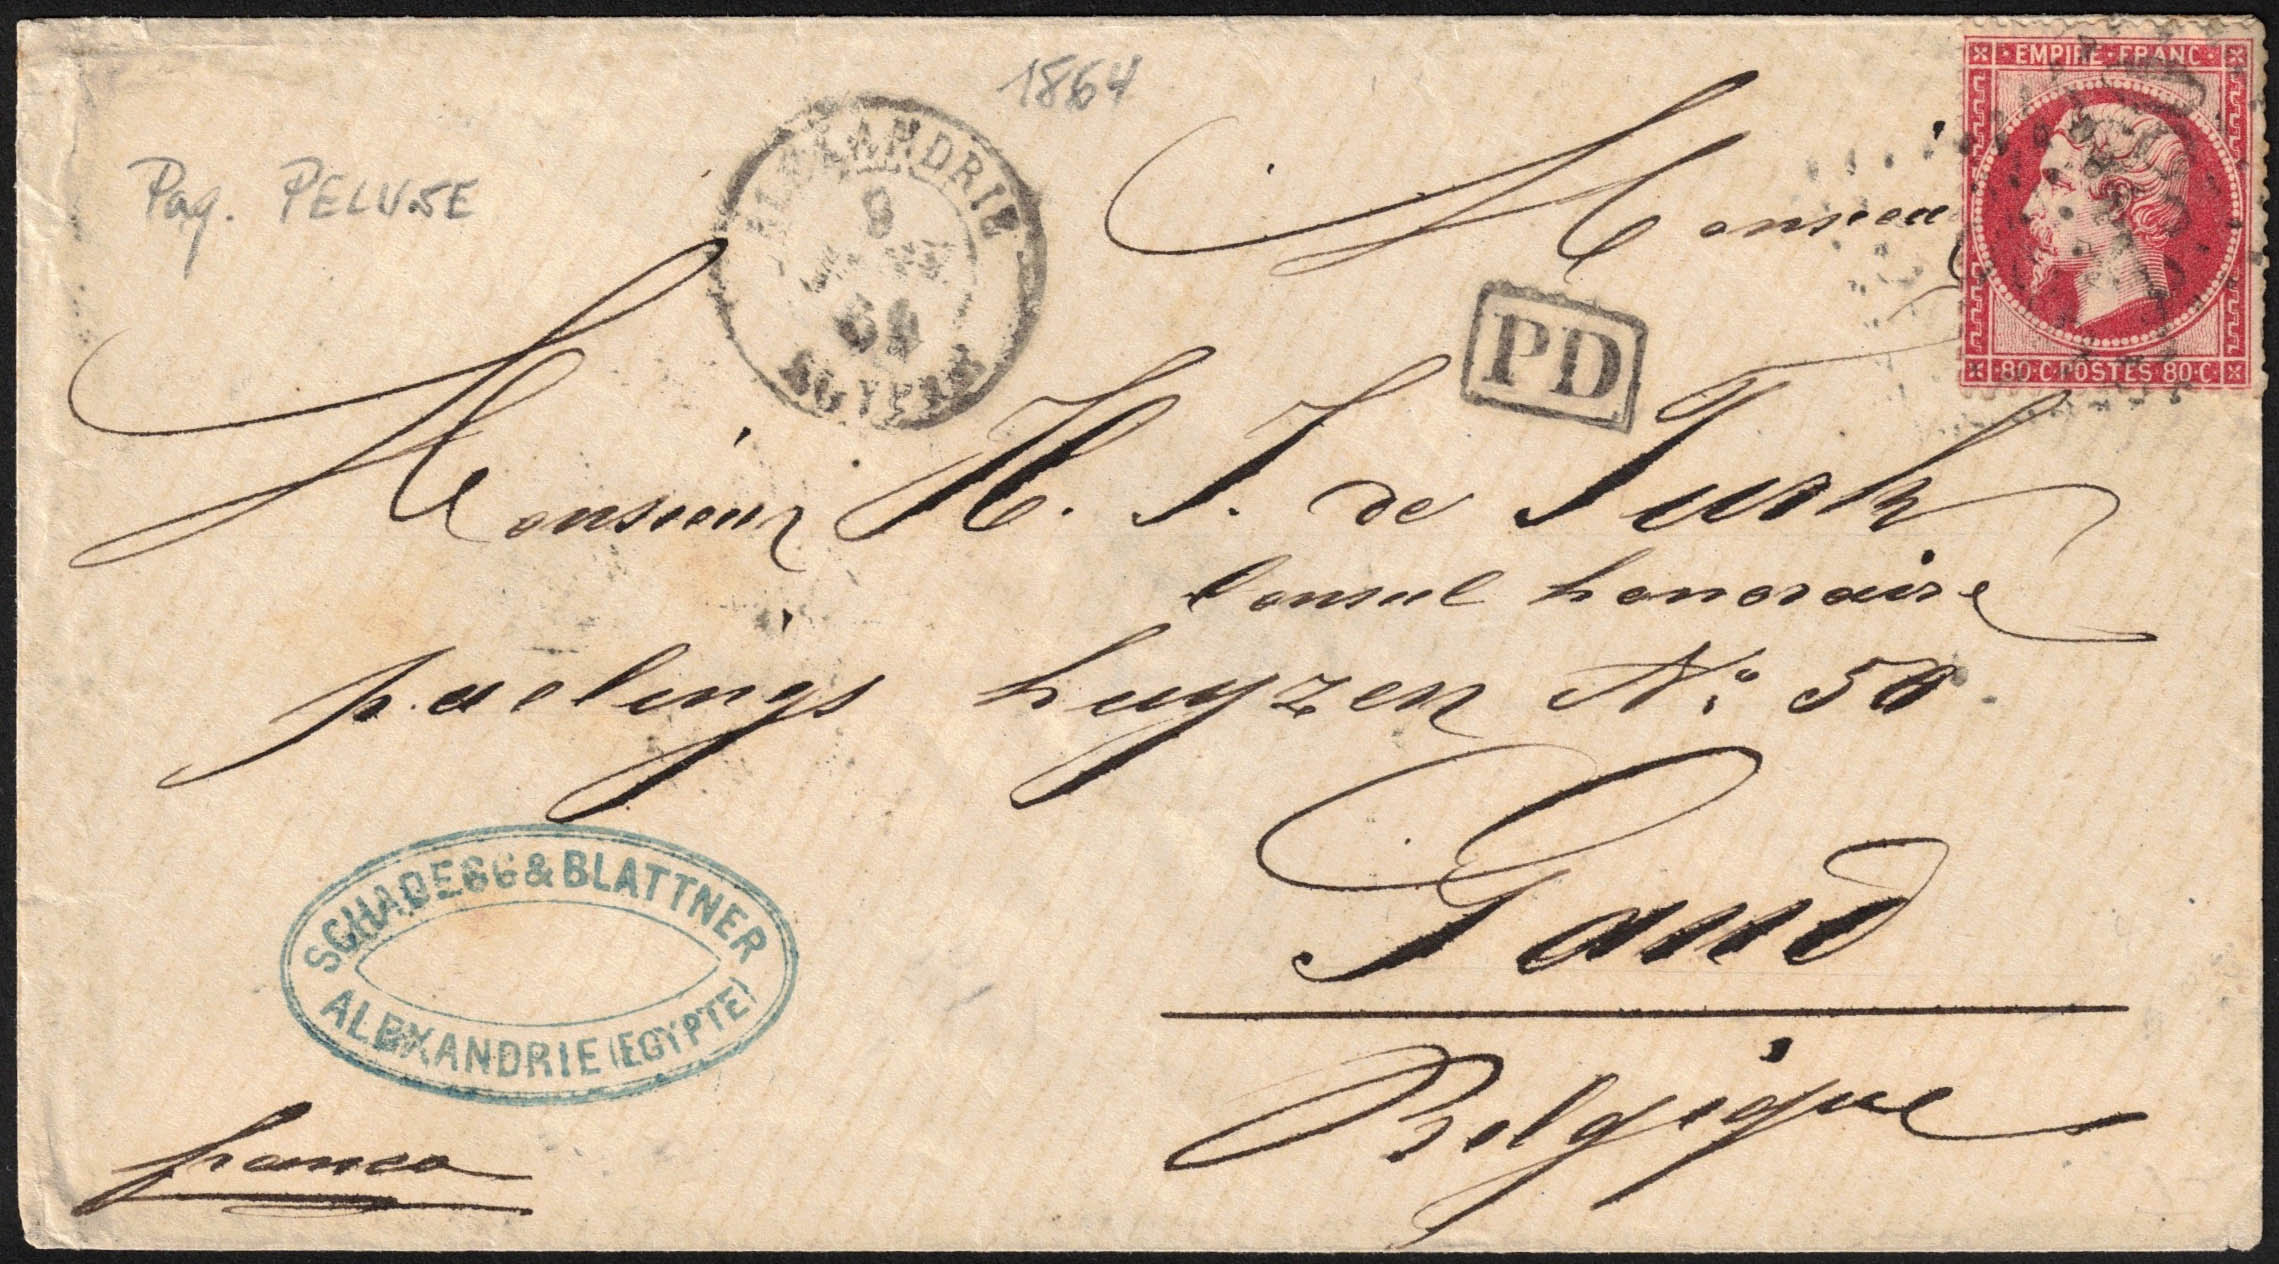 1864
Paq. PELUSE
ALEXANDRIE
9
64
EGYPTE
EMPIRE FRANC
80·C·POSTES·80·C
Monsieu
PD
Monsieur H. J. de Turk
Consul honoraire
paelings huyzen No: 50
Gand
Belgique
SCHADEGG & BLATTNER
ALEXANDRIE (EGYPTE)
franco